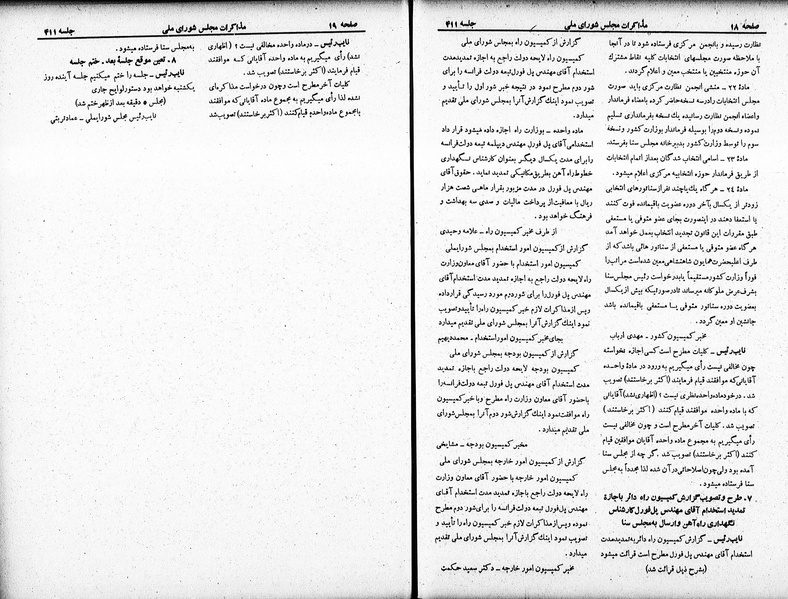 صفحه ۱۸
مذاکرات مجلس شورای ملی
جلسه ۴۱۱
نظارت رسیده و بانجمن مرکزی فرستاده شود تا در آنجا
با ملاحظه صورت مجلسهای انتخابات کلیه نقاط مشترک
آن حوزه منتخبین یا منتخب معین و اعلام گردد.
مادهٔ ۲۲ - منشی انجمن نظارت مرکزی باید صورت
مجلس انتخابات را در سه نسخه حاضر کرده بامضاء فرماندار
و اعضاء انجمن نظارت رسانیده یک نسخه بفرمانداری تسلیم
نموده و نسخه دوم را بوسیله فرماندار بوزارت کشور و نسخه
سوم را توسط وزارت کشور بدبیرخانه مجلس سنا بفرستد.
مادهٔ ۲۳ - اسامی انتخاب شدگان بعد از اتمام انتخابات
از طریق فرماندار حوزه انتخابیه مرکزی اعلام میشود.
مادهٔ ۲۴ - هر گاه یک یا چند نفر از سناتورهای انتخابی
زودتر از یکسال بآخر دوره عضویت باقیمانده فوت کنند
یا استعفا دهند در اینصورت بجای عضو متوفی یا مستعفی
طبق مقررات این قانون تجدید انتخاب بعمل خواهد آمد
هر گاه عضو متوفی یا مستعفی از سناتور هائی باشد که از
طرف اعلیحضرت همایون شاهنشاهی معین شده است مراتب را
فوراً وزارت کشور مستقیماً یا بدرخواست رئیس مجلس سنا
بشرف عرض ملوکانه میرساند تا در صورتیکه بیش از یکسال
بعضویت دوره سناتور متوفی یا مستعفی باقیمانده باشد
جانشین او معین گردد.
مخبر کمیسیون کشور - مهدی ارباب
نایب رئیس - کلیات مطرح است کسی اجازه نخواسته
چون مخالفی نیست رأی میگیریم به ورود در مادهٔ واحده
آقایانی که موافقند قیام فرمایند (اکثر برخاستند) تصویب
شد. در خود ماده واحده نظری نیست؟ (اظهاری نشد) آقایانی
که با ماده واحده موافقند قیام کنند (اکثر برخاستند)
تصویب شد. کلیات آخر مطرح است و چون مخالفی نیست
رأی میگیریم به مجموع ماده واحده آقایان موافقین قیام
کنند (اکثر برخاستند) تصویب شد. گر چه از مجلس سنا
آمده بود ولی چون اصلاحاتی در آن شده لذا مجدداً به مجلس
سنا فرستاده میشود.
۷- طرح و تصویب گزارش کمیسیون راه دائر باجازهٔ
تمدید استخدام آقای مهندس پل فورل کارشناس
نگهداری راه آهن و ارسال به مجلس سنا
نایب رئیس - گزارش کمیسیون راه دائر به تمدید مدت
استخدام آقای مهندس پل فورل مطرح است قرائت میشود
(بشرح ذیل قرائت شد)
گزارش از کمیسیون راه بمجلس شورای ملی
کمیسیون راه لایحه دولت راجع به اجازه تمدید مدت
استخدام آقای مهندس پل فورل تبعه دولت فرانسه را برای
شور دوم مطرح نمود در نتیجه خبر شور اول را تأیید و
تصویب نمود اینک گزارش آنرا بمجلس شورای ملی تقدیم
میدارد.
ماده واحد - بوزارت راه اجازه داده میشود قرارداد
استخدامی آقای پل فورل مهندس دیپلمه تبعه دولت فرانسه
را برای مدت یکسال دیگر بعنوان کارشناس نگهداری
خطوط راه آهن بطریق مکانیکی تمدید نماید. حقوق آقای
مهندس پل فورل در مدت مزبور بقرار ماهی شصت هزار
ریال با معافیت از پرداخت مالیات و صدی سه بهداشت و
فرهنگ خواهد بود.
از طرف مخبر کمیسیون راه - علامه وحیدی
گزارش از کمیسیون امور استخدام بمجلس شورایملی
کمیسیون امور استخدام با حضور آقای معاون وزارت
راه لایحه دولت راجع به اجازه تمدید مدت استخدام آقای
مهندس پل فورل را برای شور دوم مورد رسیدگی قرار داده
و پس از مذاکرات لازم خبر کمیسیون راه را تأیید و تصویب
نمود اینک گزارش آنرا بمجلس شورای ملی تقدیم میدارد
بجای مخبر کمیسیون امور استخدام - محمد دیهیم
گزارش از کمیسیون بودجه بمجلس شورای ملی
کمیسیون بودجه لایحه دولت راجع باجازه تمدید
مدت استخدام آقای مهندس پل فورل تبعه دولت فرانسه را
با حضور آقای معاون وزارت راه مطرح و با خبر کمیسیون
راه موافقت نمود اینک گزارش شور دوم آنرا بمجلس شورای
ملی تقدیم میدارد.
مخبر کمیسیون بودجه - مشایخی
گزارش از کمیسیون امور خارجه بمجلس شورای ملی
کمیسیون امور خارجه با حضور آقای معاون وزارت
راه لایحه دولت راجع باجازه تمدید مدت استخدام آقای
مهندس پل فورل تبعه دولت فرانسه را برای شور دوم مطرح
نموده و پس از مذاکرات لازم خبر کمیسیون راه را تأیید و
تصویب نمود اینک گزارش آنرا بمجلس شورای ملی تقدیم
میدارد.
مخبر کمیسیون امور خارجه - دکتر سعید حکمت
صفحه ۱۹
مذاکرات مجلس شورای ملی
جلسه ۴۱۱
نایب رئیس - در ماده واحده مخالفی نیست؟ (اظهاری
نشد) رأی میگیریم به ماده واحده آقایانی که موافقند
قیام فرمایند (اکثر برخاستند) تصویب شد.
کلیات آخر مطرح است و چون درخواست مذاکره‌ای
نشده لذا رأی میگیریم به مجموع ماده آقایانی که موافقند
با مجموع ماده واحده قیام کنند (اکثر برخاستند) تصویب شد
به مجلس سنا فرستاده میشود.
۸- تعیین موقع جلسهٔ بعد - ختم جلسه
نایب رئیس - جلسه را ختم میکنیم جلسه آینده روز
یکشنبه خواهد بود دستور لوایح جاری
(مجلس دقیقه بعد از ظهر ختم شد)
نایب رئیس مجلس شورایملی - عماد تربتی